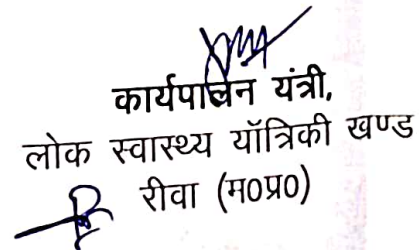 कार्यपालन यंत्री,
लोक स्वास्थ्य यॉत्रिकी खण्ड
रीवा (म0प्र0)